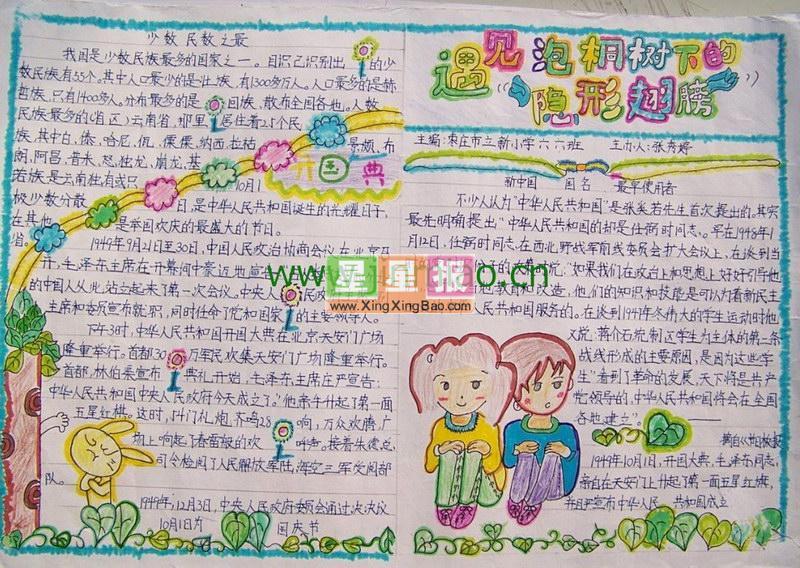 少数 民数之最
我国是少数民族最多的国家之一。目识己识别出 的少
数民族有55个。其中人口最少的是壮族,有1300多万人。人口最多的是赫
哲族,只有1400多人。分布最多的是 回族,散布全国各地。人数
民族最多的(省区)云南省,那里 居住着25个民
族,其中白、傣、哈尼、佤、傈僳、纳西、拉祜 景颇、布
朗、阿昌、普米、怒、独龙、崩龙、基
若族是云南独有或只
开国典
10月1
极少数分散 日,是中华人民共和国诞生的光耀日子,
在其他 是举国欢庆的最盛大的节日。
省。
1949年9月21日至30日,中国人民政治协商会议在北京召
开,毛泽东主席在开幕词中豪迈地宣
的中国人从此站立起来了第一次会议,中央人民政
主席和委员宣布就职,同时任命了它和国家 的主要领导人。
下午3时,中华人民共和国开国大典在北京天安门广场
隆重举行。首都30 万军民欢集天安门广场隆重举行。
首都,林伯渠宣布 典礼开始,毛泽东主席庄严宣告:
中华人民共和国中央人民政府今天成立了。"他亲午升起了第一面
五星红棋。这时,54门礼炮,齐鸣28 响,万众欢腾,广
场上响起了春雷般的欢 呼声。接着朱德总
司令检阅了人民解放军陆,海空三军受阅部
队。
1949年,12月3日,中央人民政府委员会通过次决议
10月1日为 国庆节
遇见泡桐树下的
隐形翅膀
主编:枣庄市立新小学六六班 主办人:张秀婷
新中国 国名 最早使用者
不少人认为"中华人民共和国"是张奚若先生首次提出的。其实
最先明确提出"中华人民共和国"的却是任弼时同志。早在1948年1
月12日,任弼时同志,在西北野战军前线委员会扩大会议上,在谈到当
时 "如果我们在政治上和思想上好好引导他
教育和改造,他们的知识和技能是可以为着新民主
人民共和国服务的。在谈到1947年冬伟大的学生运动时他
又说,蒋介石统制区学生为主体的第二条
战线形成的主要原因,是因为这些学
生"看到了革命的发展,天下将是共产
党领导的,中华人民共和国将会在全国
各地建立"。
1949年10月1日,开国大典,毛泽东同志,
亲自在天安门上升起了第一面五星红旗,
并且严宣布中华人民 共和国成立
星星报
www.XingXingBao.com